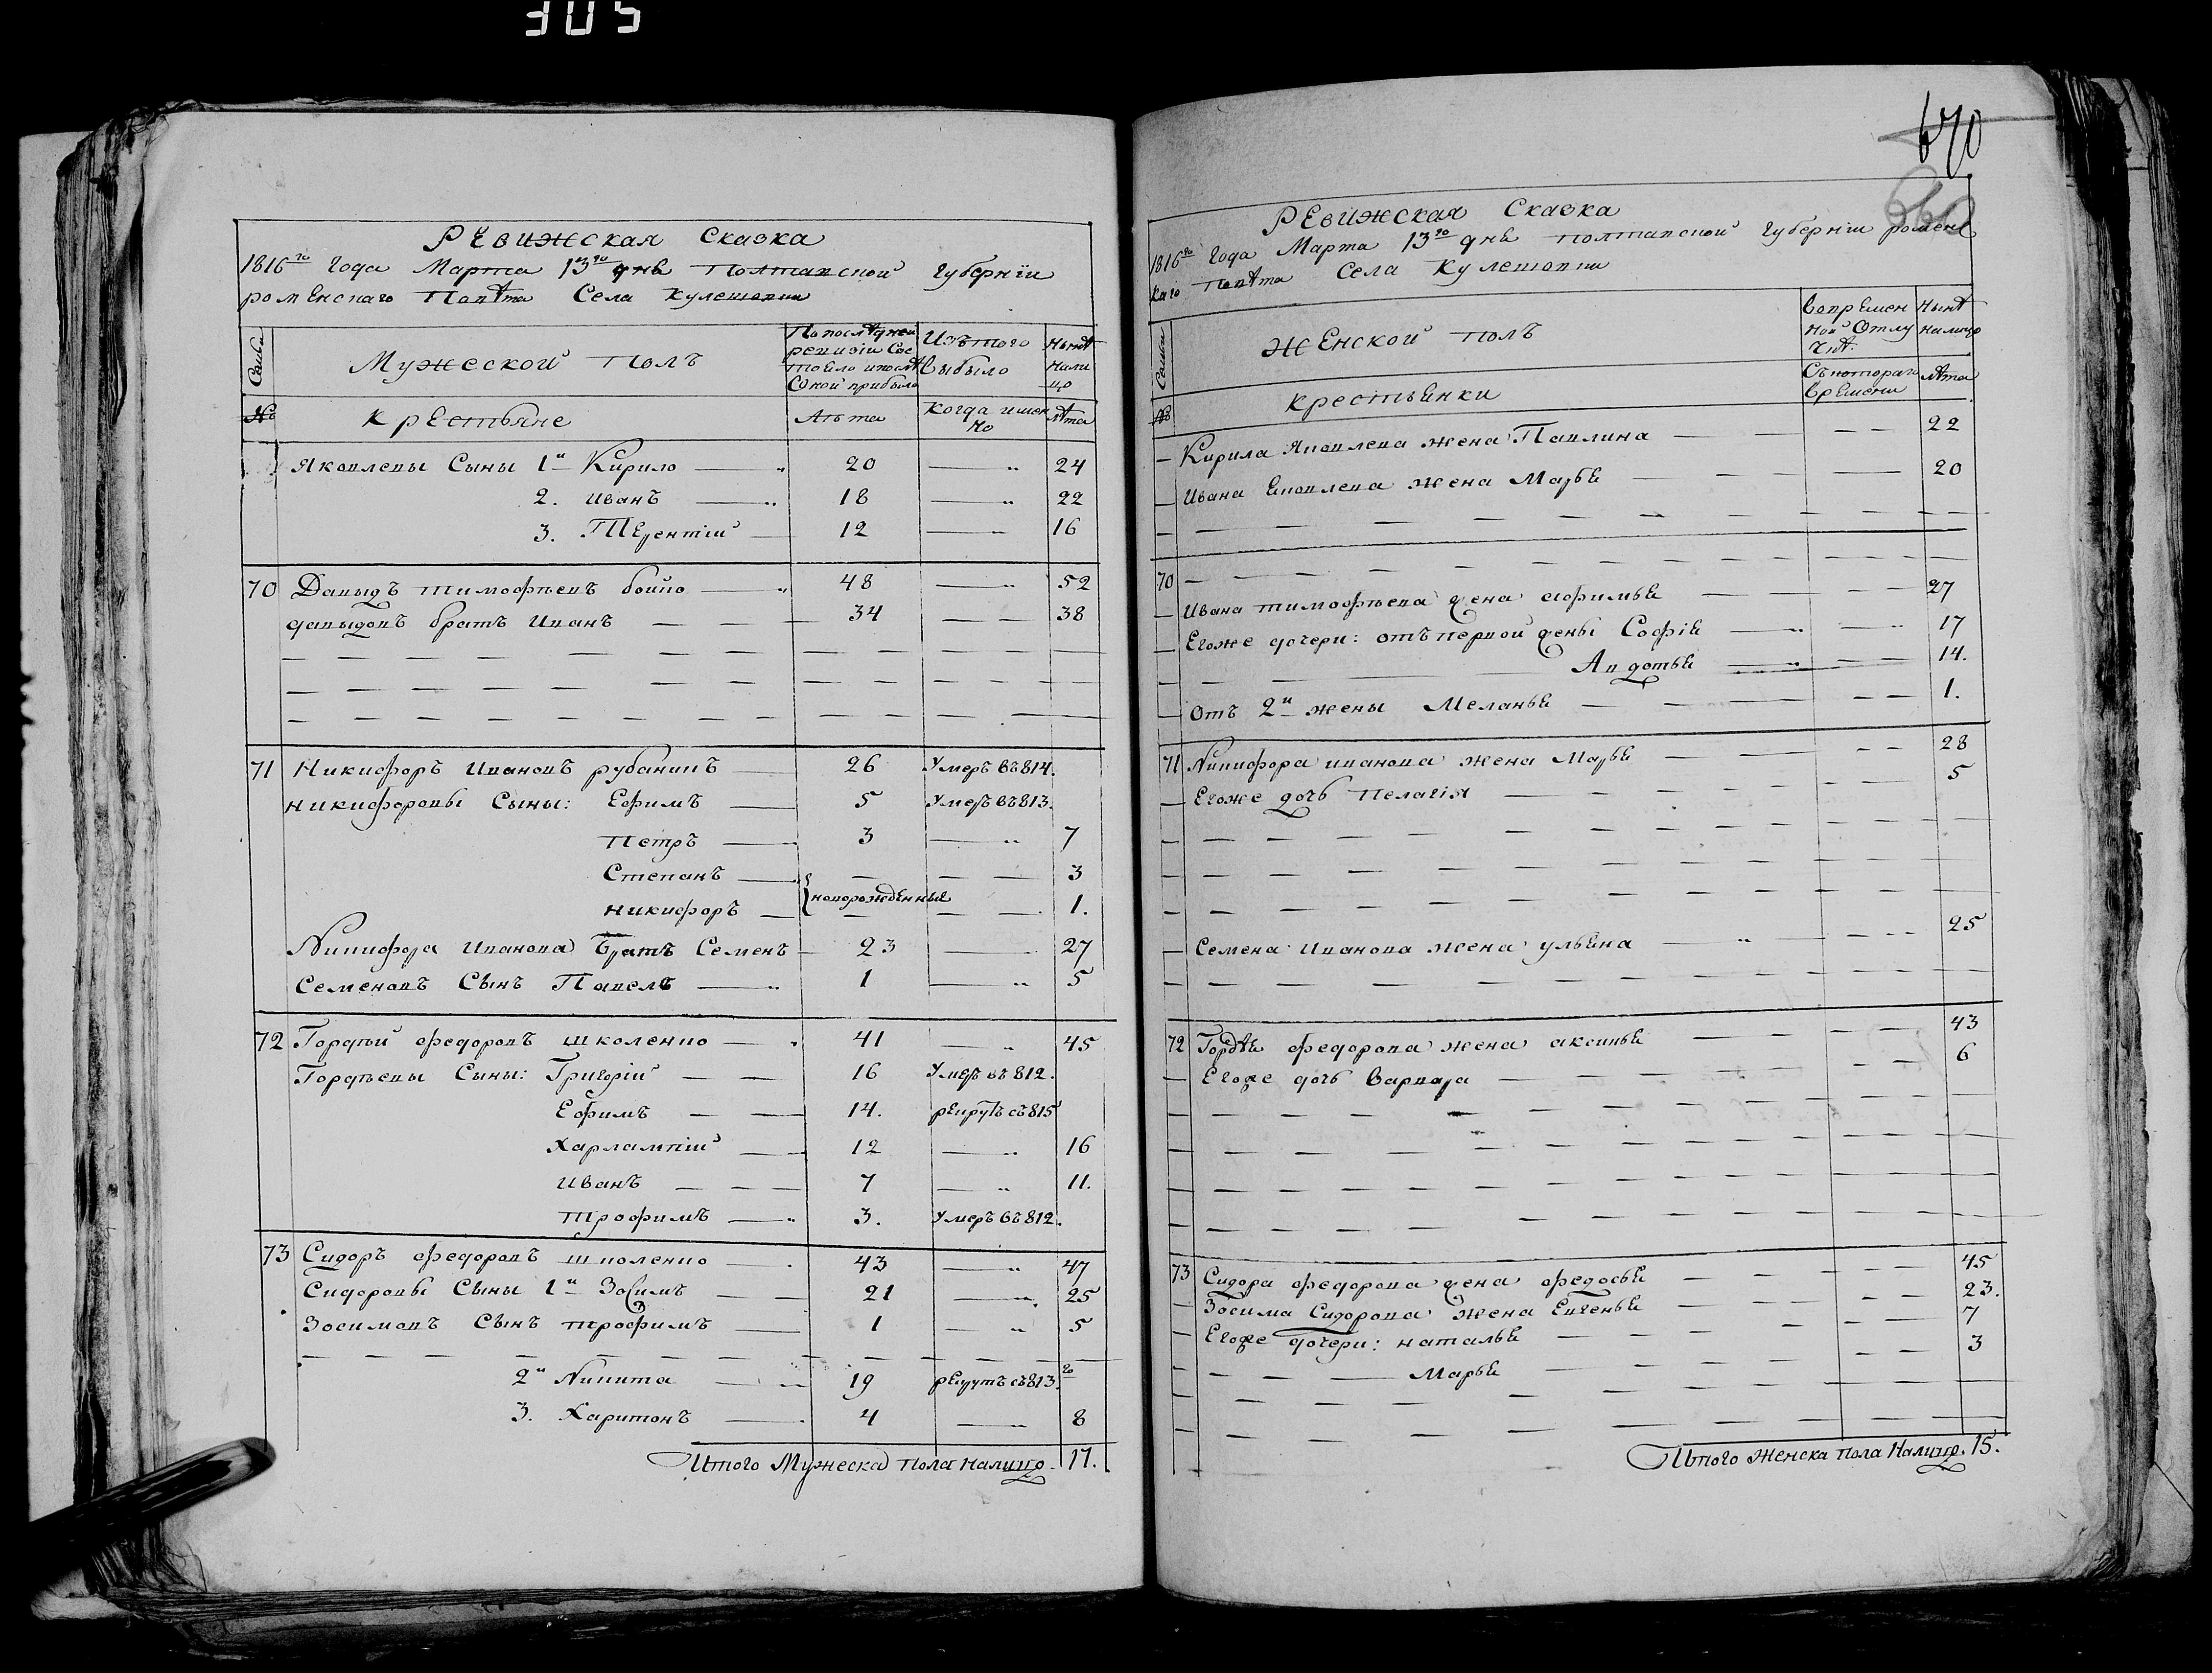 305
Ревижская Сказка
1816го Года Марта 13го дня Полтавской Губернїи
роменскаго Повѣта Села Кулешовки
Семьи
Мужеской полъ
По последней ревизіи Состояло и послѣ Оной прибыло
Изъ того выбыло
Нынѣ налицо
№
Крестьяне
Лѣта
Когда имянно
лѣта
Яковлевы Сыны 1й Кирило 20 24
2. Иванъ 18 22
3. Терентій 12 16
70 Давыдъ тимофѣевъ бойко 48 52
давыдовъ братъ Иванъ 34 38
71 Никифоръ Ивановъ рубаникъ 26 Умеръ въ 814.
никифоровы Сыны: Ефимъ 5 Умеръ въ 813.
Петръ 3 7
Степанъ 3
новорожденные
никифоръ 1.
Никифора Иванова братъ Семенъ 23 27
Семеновъ Сынъ Павелъ 1 5
72 Гордѣй федоровъ школенко 41 45
Гордѣевы Сыны: Григорій 16 Умеръ въ 812.
Ефимъ 14. рекрутъ съ 815
Харлампій 12 16
Иванъ 7 11.
трофимъ 3. Умеръ въ 812.
73 Сидоръ федоровъ школенко 43 47
Сидоровы Сыны 1й Зосимъ 21 25
Зосимовъ Сынъ трофимъ 1 5
2й Никита 19 рекрутъ съ 813го
3. Харитонъ 4 8
Итого Мужеска пола налицо. 17.
670
660
Ревижская Сказка
1816го Года Марта 13го дня полтавской Губерніи роменс
каго повѣта Села Кулешовки
Семьи
Женской полъ
Во времен
ной Отлу
чкѣ.
Нынѣ
налицо
№
крестьянки
Съ котораго
времени
лѣта
Кирила Яковлева жена Павлина 22
Ивана Яковлева жена Марья 20
70
Ивана тимофѣева жена афимья 27
Егоже дочери: отъ первой жены Софія 17
Авдотья 14.
Отъ 2й жены Меланья 1.
71 Никифора иванова жена Марья 28
Егоже дочь Пелагія 5
Семена Иванова жена ульяна 25
72 Гордѣя федорова жена аксинья 43
Егоже дочь Варвара 6
73 Сидора федорова жена федосья 45
Зосима Сидорова жена Евгенья 23.
Егоже дочери: наталья 7
Марья 3
Итого Женска пола Налицо. 15.